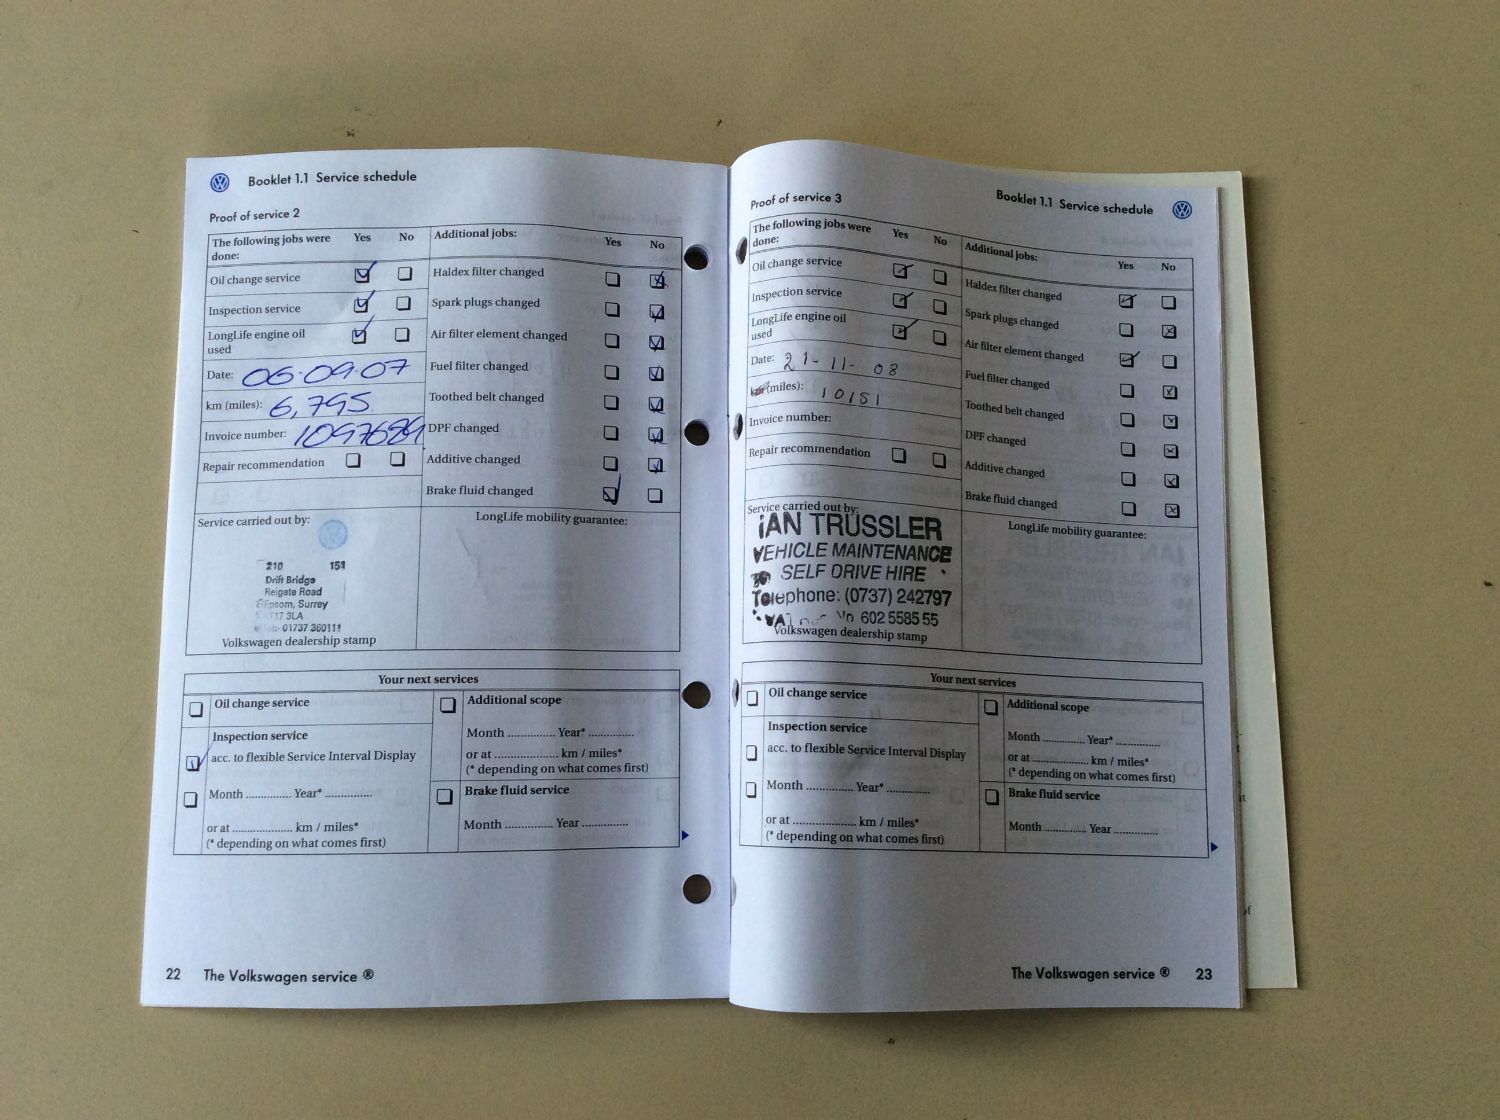 Booklet 1.1 Service schedule
Proof of service 2
The following jobs were done: Yes No
Oil change service
Inspection service
LongLife engine oil used
Date: 06.09.07
km (miles): 6,795
Invoice number: 1097689
Repair recommendation
Additional jobs: Yes No
Haldex filter changed
Spark plugs changed
Air filter element changed
Fuel filter changed
Toothed belt changed
DPF changed
Additive changed
Brake fluid changed
Service carried out by:
210 151
Drift Bridge
Reigate Road
Epsom, Surrey
17 3LA
01737 360111
Volkswagen dealership stamp
LongLife mobility guarantee:
Your next services
Oil change service
Inspection service
acc. to flexible Service Interval Display
Month .............. Year* ..............
or at .................... km / miles*
(* depending on what comes first)
Additional scope
Month .............. Year* ..............
or at .................... km / miles*
(* depending on what comes first)
Brake fluid service
Month .............. Year ..............
22 The Volkswagen service ®
Booklet 1.1 Service schedule
Proof of service 3
The following jobs were done: Yes No
Oil change service
Inspection service
LongLife engine oil used
Date: 21-11-08
km (miles): 10151
Invoice number:
Repair recommendation
Additional jobs: Yes No
Haldex filter changed
Spark plugs changed
Air filter element changed
Fuel filter changed
Toothed belt changed
DPF changed
Additive changed
Brake fluid changed
Service carried out by:
IAN TRUSSLER
VEHICLE MAINTENANCE
SELF DRIVE HIRE
Telephone: (0737) 242797
VAT No 602 5585 55
Volkswagen dealership stamp
LongLife mobility guarantee:
Your next services
Oil change service
Inspection service
acc. to flexible Service Interval Display
Month .............. Year* ..............
or at .................... km / miles*
(* depending on what comes first)
Additional scope
Month .............. Year* ..............
or at .................... km / miles*
(* depending on what comes first)
Brake fluid service
Month .............. Year ..............
The Volkswagen service ® 23